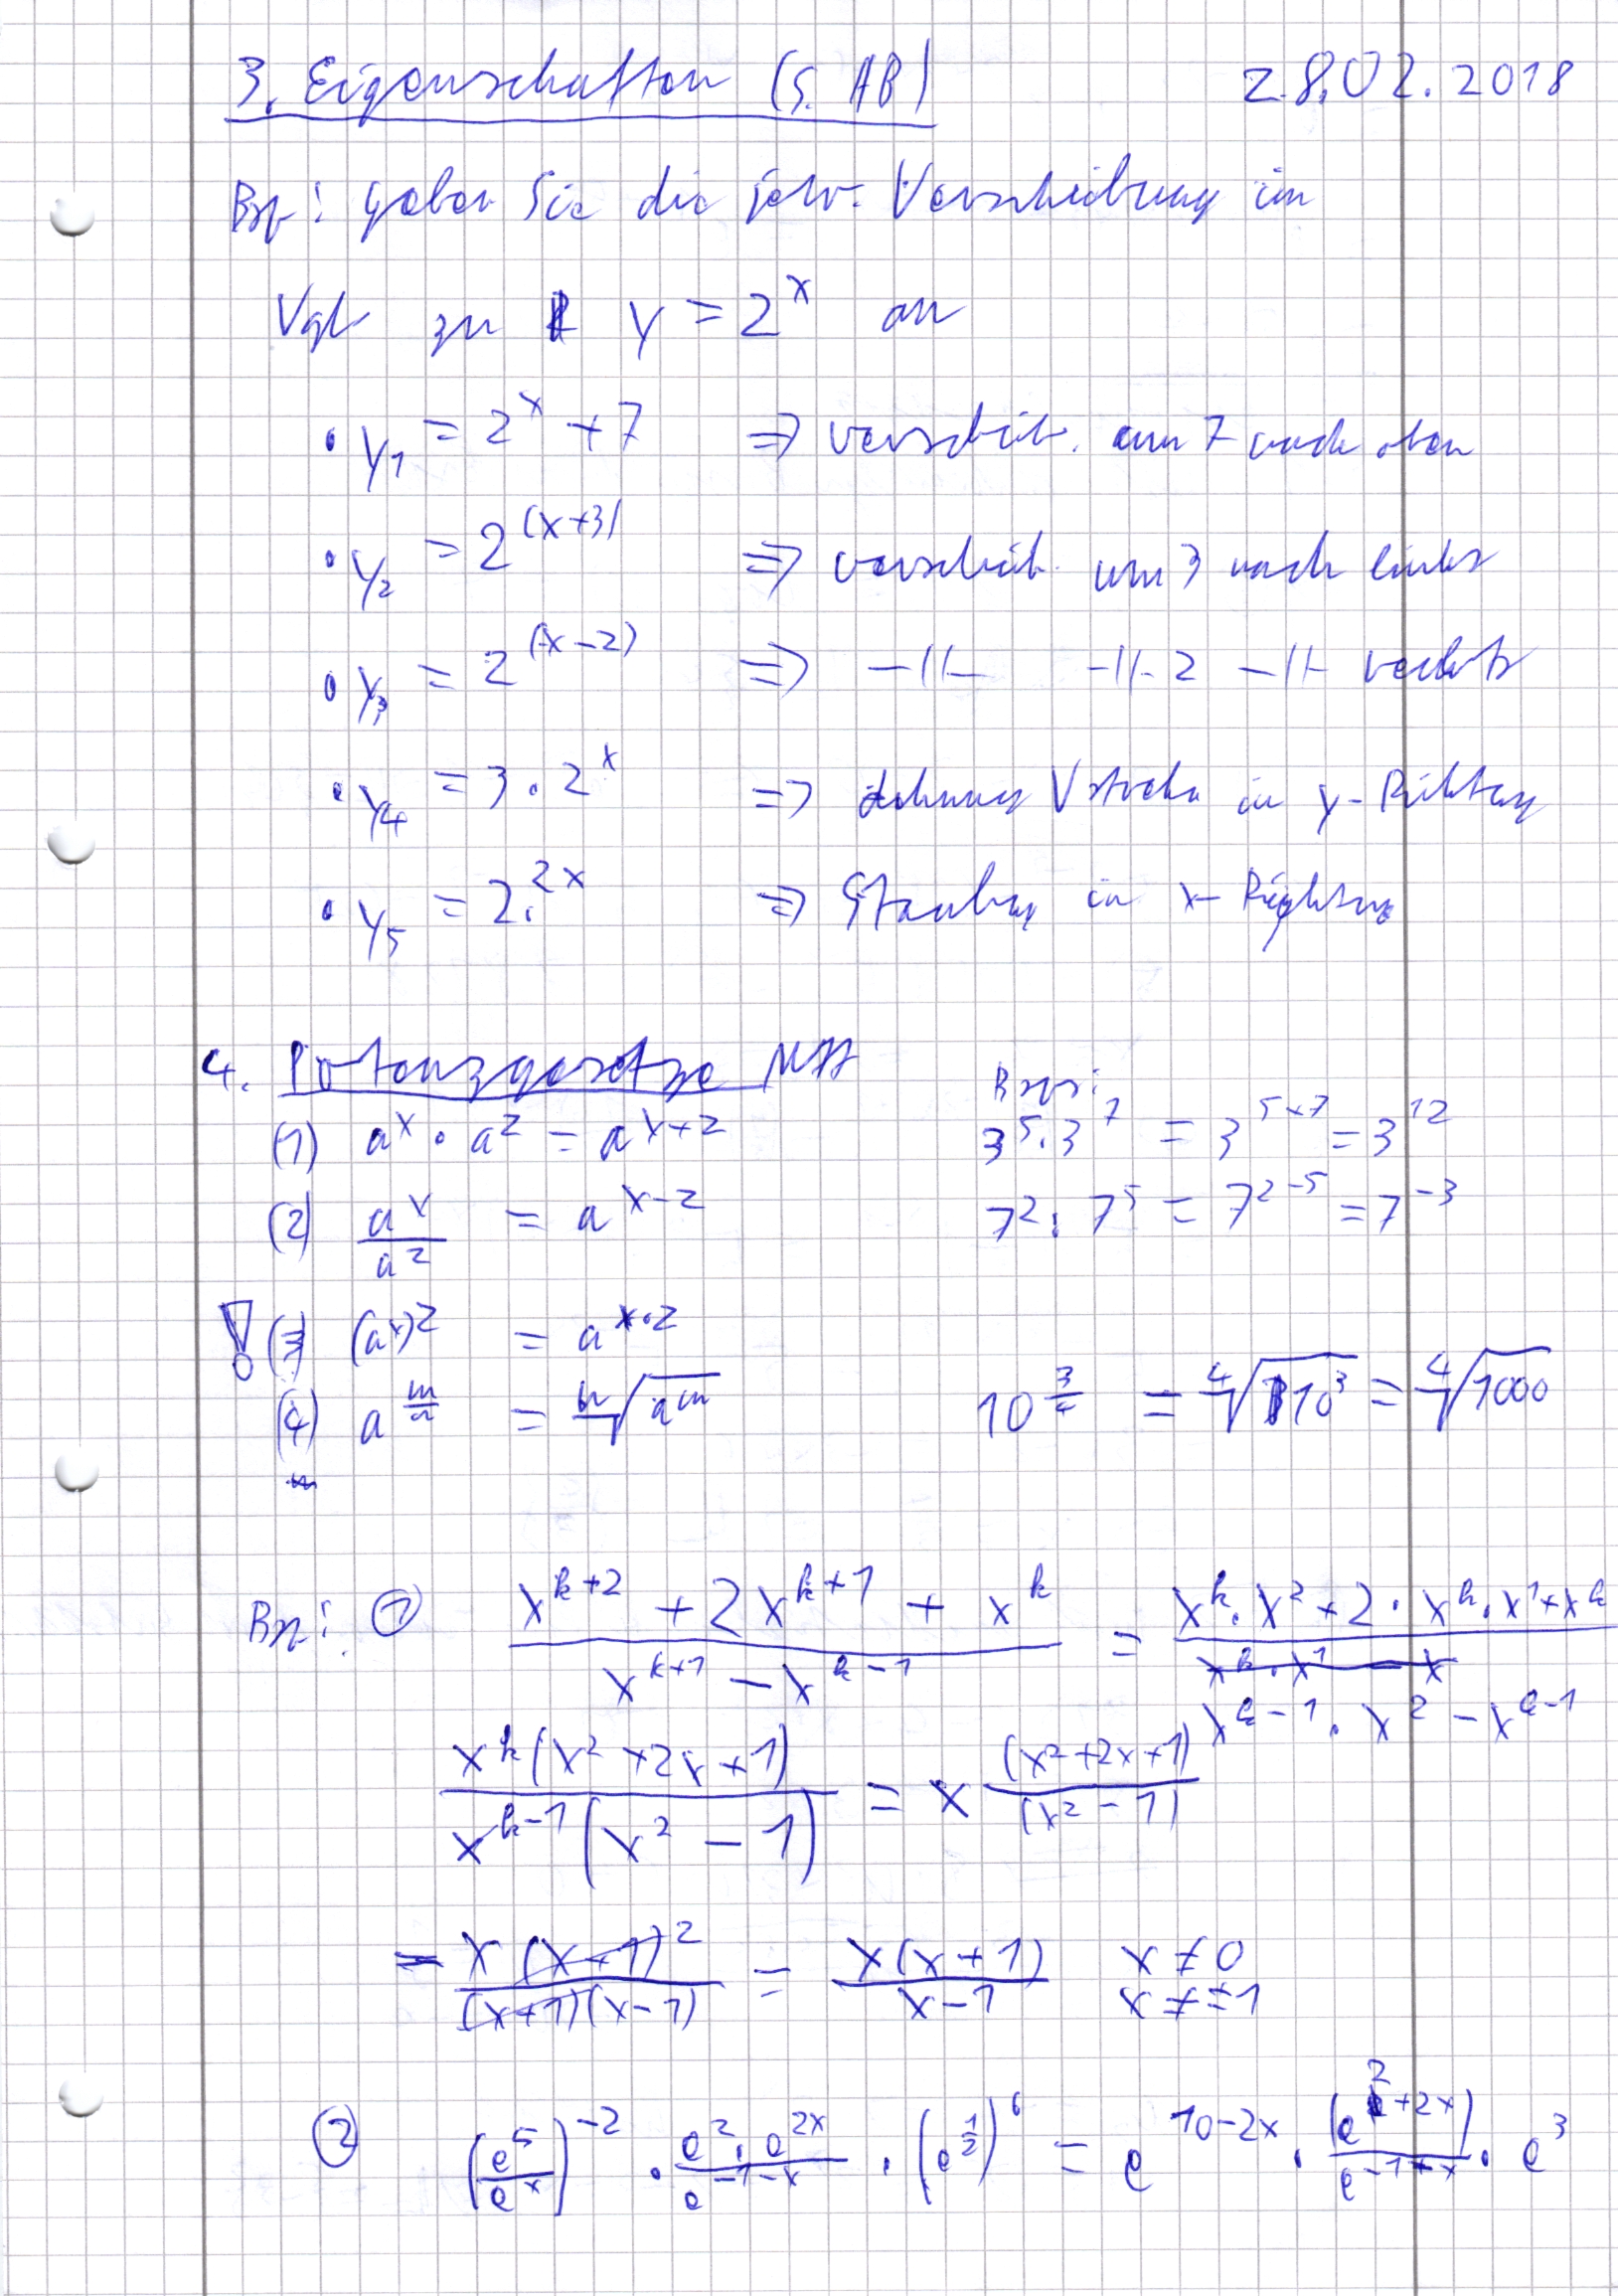 3. Eigenschaften (s. AB) 28.02.2018
Bsp: geben Sie die jew. Verschiebung im
Vgl zu y = 2^x an
• y₁ = 2^x + 7 ⇒ verschieb. um 7 nach oben
• y₂ = 2^(x+3) ⇒ verschieb. um 3 nach links
• y₃ = 2^(x-2) ⇒ -||- -||- 2 -||- rechts
• y₄ = 3 · 2^x ⇒ dehnung in y-Richtung
• y₅ = 2^2x ⇒ Stauchung in x-Richtung
4. Potenzgesetze
Bsp:
(1) a^x · a^z = a^(x+z) 3^5 · 3^7 = 3^(5+7) = 3^12
(2) a^x / a^z = a^(x-z) 7^2 : 7^5 = 7^(2-5) = 7^-3
! (3) (a^x)^z = a^(x·z)
(4) a^(m/n) = ⁿ√(a^m) 10^(3/4) = ⁴√(10^3) = ⁴√1000
Bsp: ① (x^(k+2) + 2x^(k+1) + x^k) / (x^(k+1) - x^(k-1)) = (x^k · x^2 + 2 · x^k · x^1 + x^k) / (x^(k-1) · x^2 - x^(k-1))
x^k (x^2 + 2x + 1) / x^(k-1) (x^2 - 1) = x (x^2 + 2x + 1) / (x^2 - 1)
= x (x+1)^2 / (x+1)(x-1) = x(x+1) / (x-1) x ≠ 0
x ≠ ±1
② (e^5 / e^x)^-2 · (e^2 · e^2x) / e^(-1-x) · (e^(1/2))^6 = e^(10-2x) · (e^(2+2x)) / e^(-1+x) · e^3